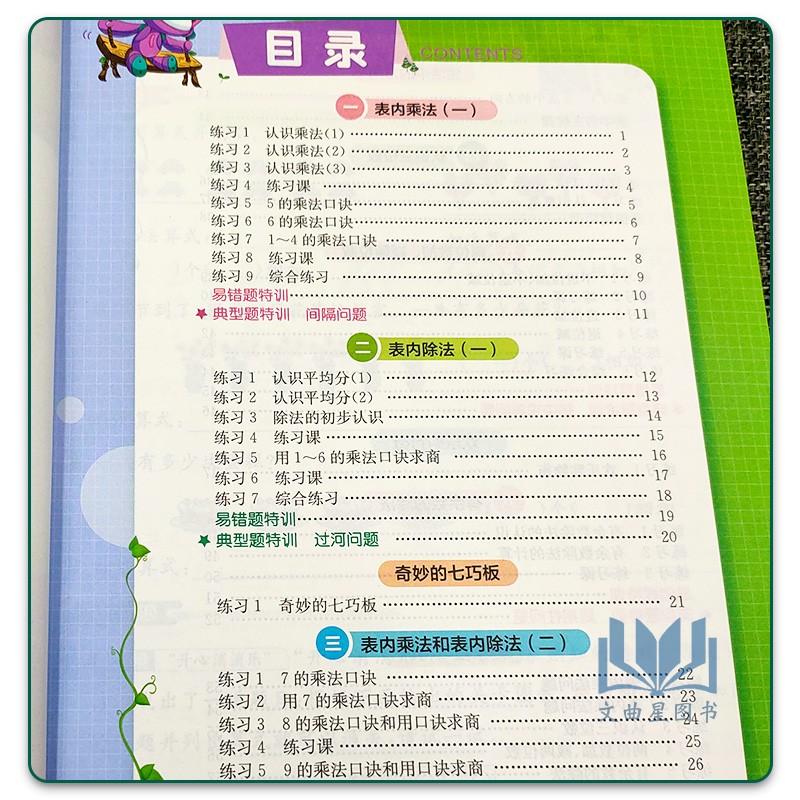 目录 CONTENTS
一 表内乘法（一）
练习1 认识乘法(1) …… 1
练习2 认识乘法(2) …… 2
练习3 认识乘法(3) …… 3
练习4 练习课 …… 4
练习5 5的乘法口诀 …… 5
练习6 6的乘法口诀 …… 6
练习7 1～4的乘法口诀 …… 7
练习8 练习课 …… 8
练习9 综合练习 …… 9
易错题特训 …… 10
★ 典型题特训 间隔问题 …… 11
二 表内除法（一）
练习1 认识平均分(1) …… 12
练习2 认识平均分(2) …… 13
练习3 除法的初步认识 …… 14
练习4 练习课 …… 15
练习5 用1～6的乘法口诀求商 …… 16
练习6 练习课 …… 17
练习7 综合练习 …… 18
易错题特训 …… 19
★ 典型题特训 过河问题 …… 20
奇妙的七巧板
练习1 奇妙的七巧板 …… 21
三 表内乘法和表内除法（二）
练习1 7的乘法口诀 …… 22
练习2 用7的乘法口诀求商 …… 23
练习3 8的乘法口诀和用口诀求商 …… 24
练习4 练习课 …… 25
练习5 9的乘法口诀和用口诀求商 …… 26
文曲星图书